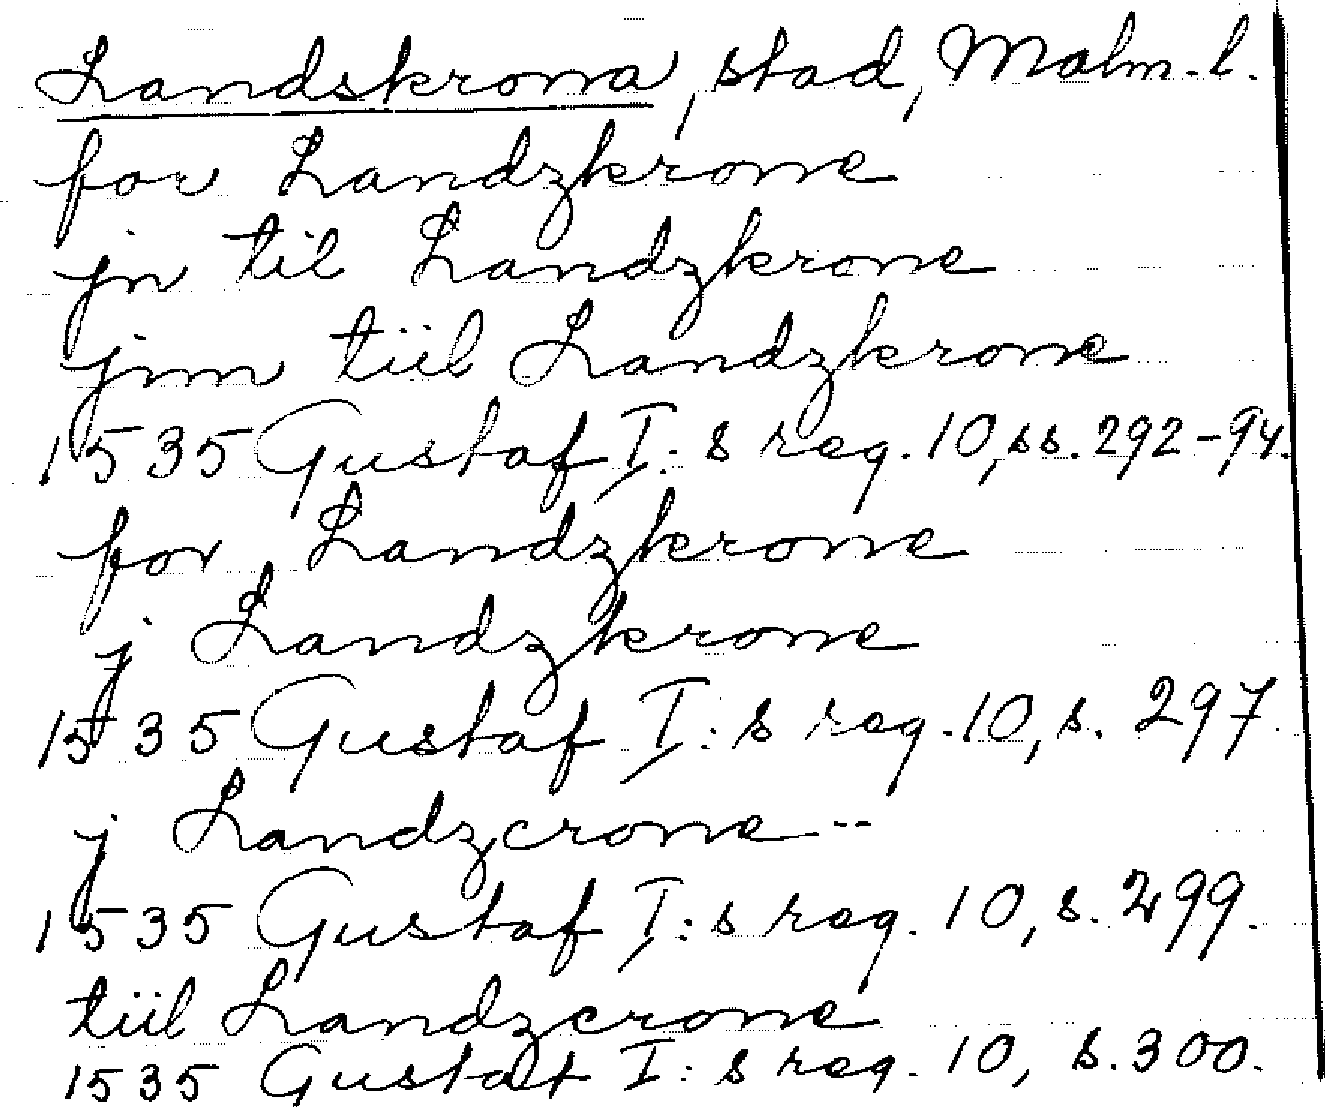 Landskrona, stad, Malm. l.
for Landzkrone
jn til Landzkrone
jnn tiil Landzkrone
1535 Gustaf I:s reg. 10, ss. 292-94.
for Landzkrone
j Landzkrone
1535 Gustaf I:s reg. 10, s. 297.
j Landzcrone --
1535 Gustaf I:s reg. 10, s. 299.
tiil Landzcrone
1535 Gustaf I:s reg. 10, s. 300.